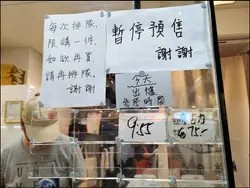 每次排隊,
限購一件,
如欲再買,
請再排隊,
謝謝
暫停預售
謝謝
今天
出爐
時間
9:55
75.-